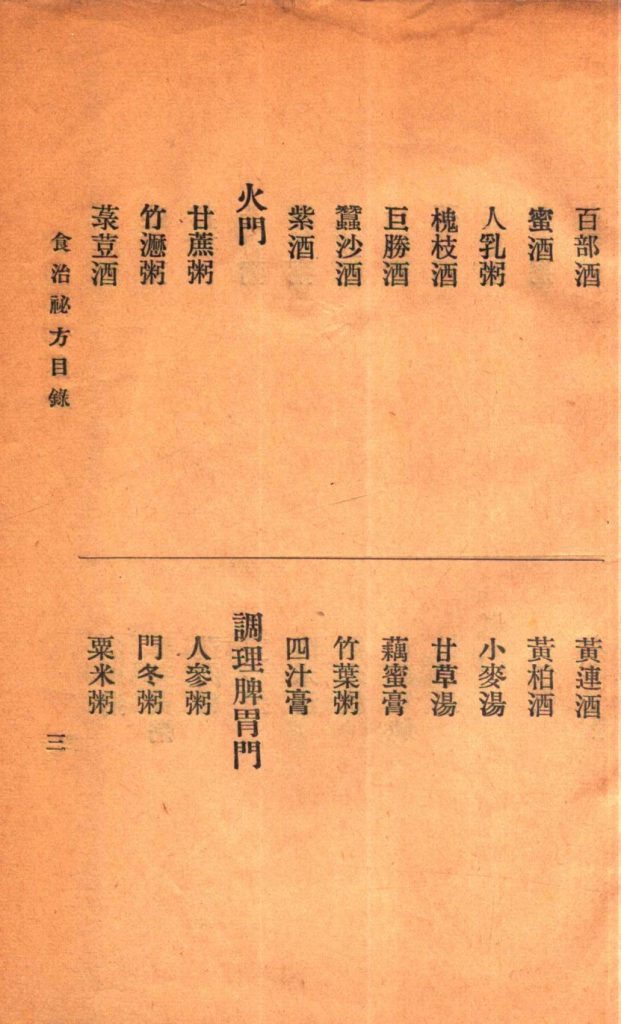 百部酒
蜜酒
人乳粥
槐枝酒
巨勝酒
蠶沙酒
紫酒
火門
甘蔗粥
竹瀝粥
菉荳酒
黃連酒
黃柏酒
小麥湯
甘草湯
藕蜜膏
竹葉粥
四汁膏
調理脾胃門
人參粥
門冬粥
粟米粥
食治祕方目錄
三